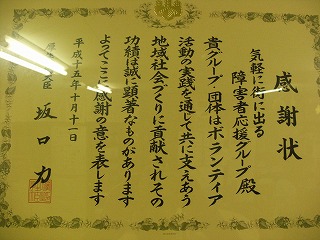 感謝状
気軽に街に出る
障害者応援グループ殿
貴グループ・団体はボランティア
活動の実践を通して共に支えあう
地域社会づくりに貢献されその
功績は誠に顕著なものがあります
よってここに感謝の意を表します
平成十五年十月十一日
大臣 坂口力